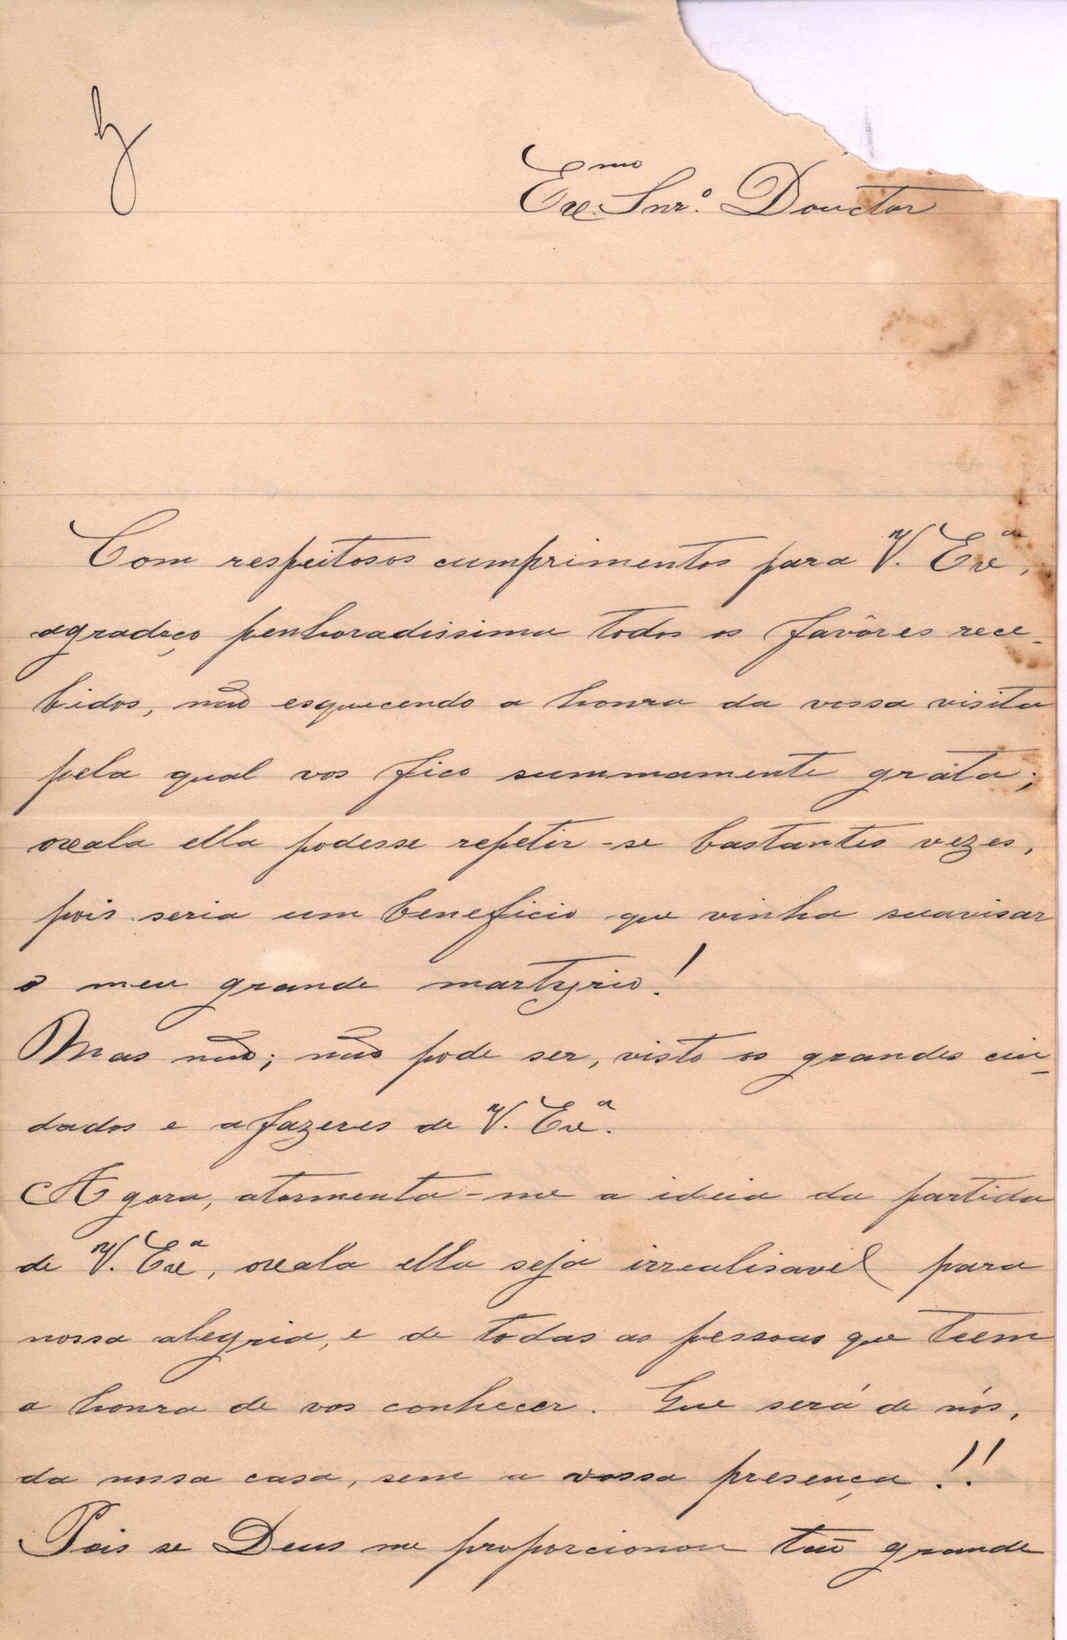 Exc.mo Snr.º Douctor
Com respeitosos cumprimentos para V. Exc.ª,
agradeço penhoradissima todos os favôres rece-
bidos, não esquecendo a honra da vossa visita
pela qual vos fico summamente gráta;
oxala ella podesse repetir-se bastantes vezes,
pois seria um beneficio que vinha suavisar
o meu grande martyrio!
Mas não; não pode ser, visto os grandes cui-
dados e afazeres de V. Exc.ª.
Agora, atormenta-me a ideia da partida
de V. Exc.ª, oxala ella seja irrealisavel para
nossa alegria, e de todas as pessoas que teem
a honra de vos conhecer. Que será de nós,
da nossa casa, sem a vossa presença!!
Pois se Deus me proporcionou tão grande